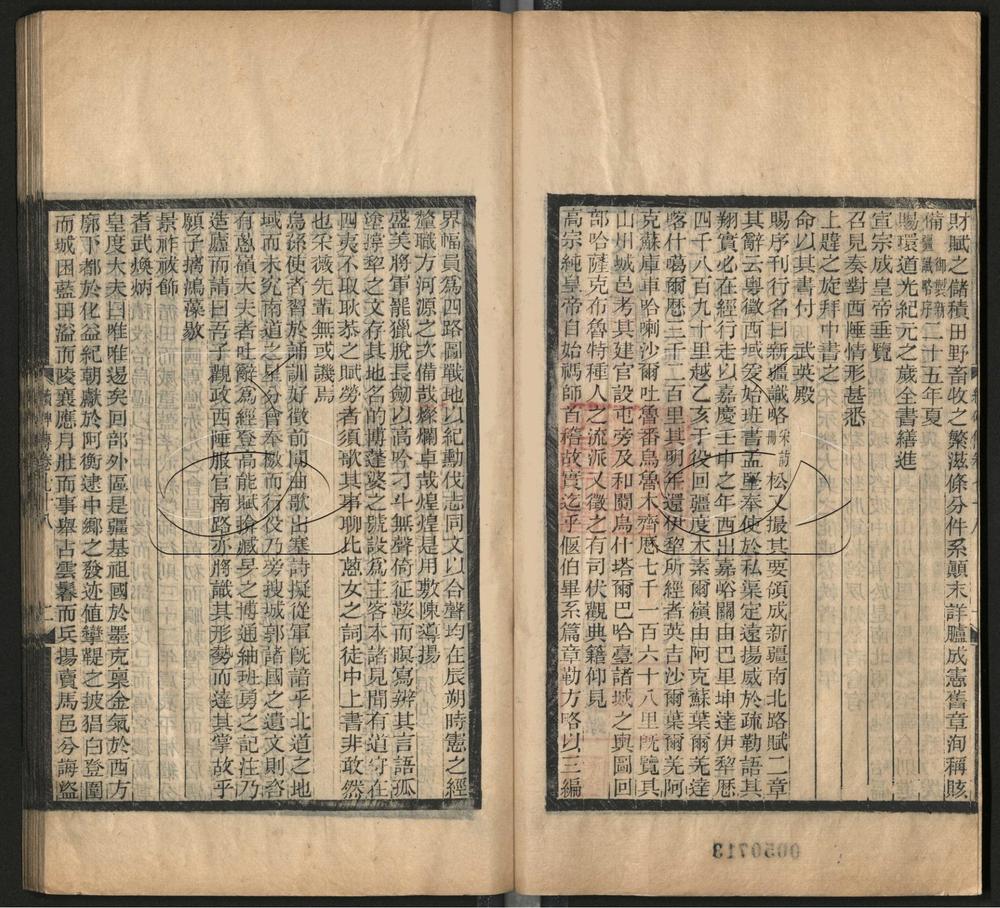 財賦之儲積田野畜牧之繁滋條分件系顛末詳臚成憲舊章洵稱賅
備 御製新疆識略序 二十五年夏
賜環道光紀元之歲全書繕進
宣宗成皇帝垂覽
召見奏對西陲情形甚悉
上韙之旋拜中書之
命以其書付 武英殿
賜序刊行名曰新疆識略 松又撮其要領成新疆南北路賦二章
其辭云粵徵西域爰始班書孟堅奉使於私渠定遠揚威於疏勒語其
翔實必在經行走以嘉慶壬申之年西出嘉峪關由巴里坤達伊犂歷
四千八百九十里越乙亥于役回疆度木素爾嶺由阿克蘇葉爾羌達
喀什噶爾歷三千二百里其明年還伊犂所經者英吉沙爾葉爾羌阿
克蘇庫車哈喇沙爾吐魯番烏魯木齊歷七千一百六十八里既覽其
山川城邑考其建官設屯旁及和闐烏什塔爾巴哈臺諸城之輿圖回
部哈薩克布魯特種人之流派又徵之有司伏觀典籍仰見
高宗純皇帝自始禡師首稽故實迄乎偃伯畢系篇章勒方略以三編
界幅員爲四路圖戰地以紀勳伐志同文以合聲均在辰朔時憲之經
釐職方河源之次備哉燦爛卓哉煌煌是用敷陳導揚
盛美將軍龍獵脫長劒以高吟刁斗無聲倚征鞍而暝寫辨其言語孤
塗撐犂之文存其地名的博蓬婆之號設爲主客本諸見聞有道守在
四夷不取耿恭之賦勞者須歌其事聊比葱女之詞徒中上書非敢然
也采薇先輩無或譏焉
烏孫使者習於誦訓好徵前聞油歌出塞詩擬從軍旣諳乎北道之地
域而未究南道之星分會奉檄而行役乃旁搜城郭諸國之遺文則咨
有葱嶺大夫者吐辭爲經登高能賦捦臧旻之博通紬班勇之記注乃
造廬而請曰吾子觀政西陲服官南路亦將識其形勢而達其掌故乎
願子摛鴻藻歇
景祚祓飾
耆武煥炳
皇度大夫曰唯唯逷矣回部外區是疆基祖國於墨克稟金氣於西方
廓下都於化益紀朝獻於阿衡逮中鄉之發迹值鞮之披猖白登圍
而城困藍田溢而陵襄應月壯而事舉占雲鬆而兵揚賣馬邑兮誨盜
0050713